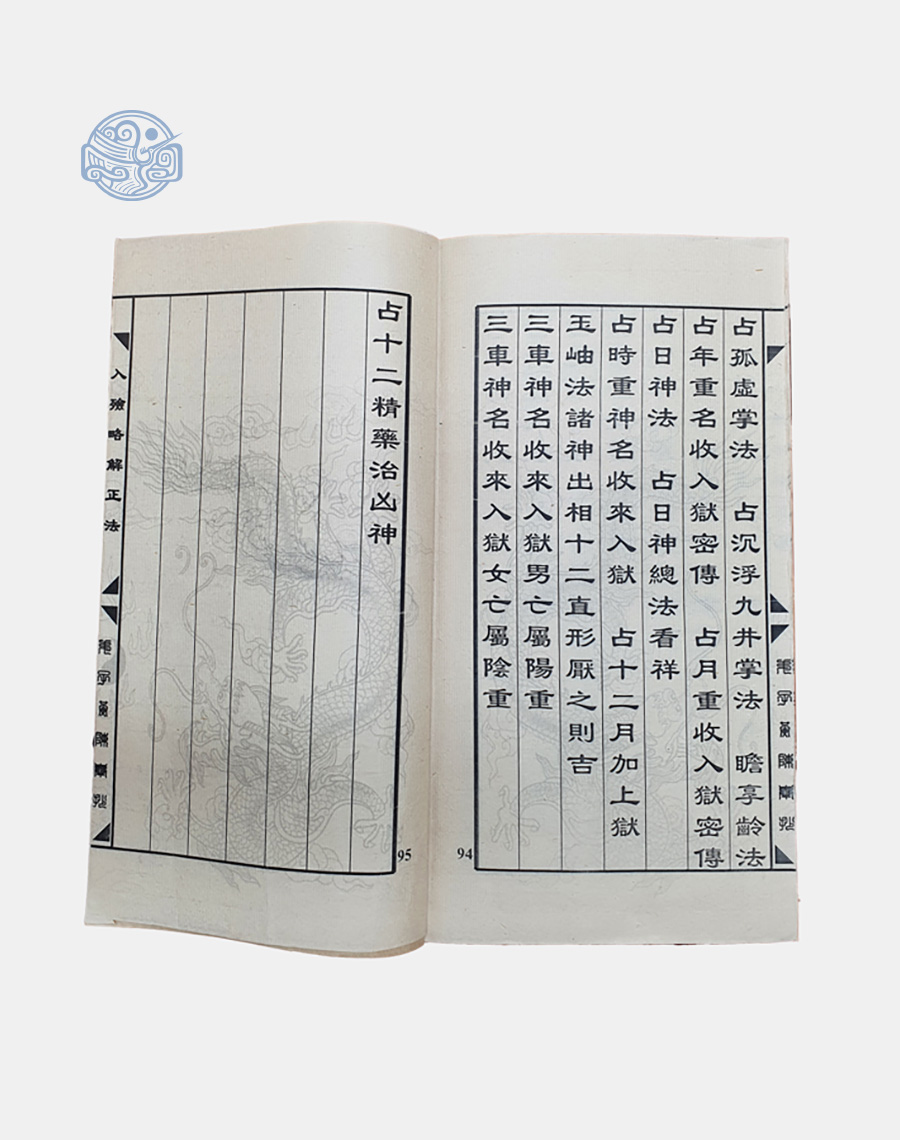 占孤虛掌法　占沉浮九井掌法　瞻享齡法
占年重名收入獄密傳　占月重收入獄密傳
占日神法　占日神總法看祥
占時重神名收來入獄　占十二月加上獄
玉岫法諸神出相十二直形厭之則吉
三車神名收來入獄男亡屬陽重
三車神名收來入獄女亡屬陰重
94
占十二精藥治凶神
95
入殮略解正法